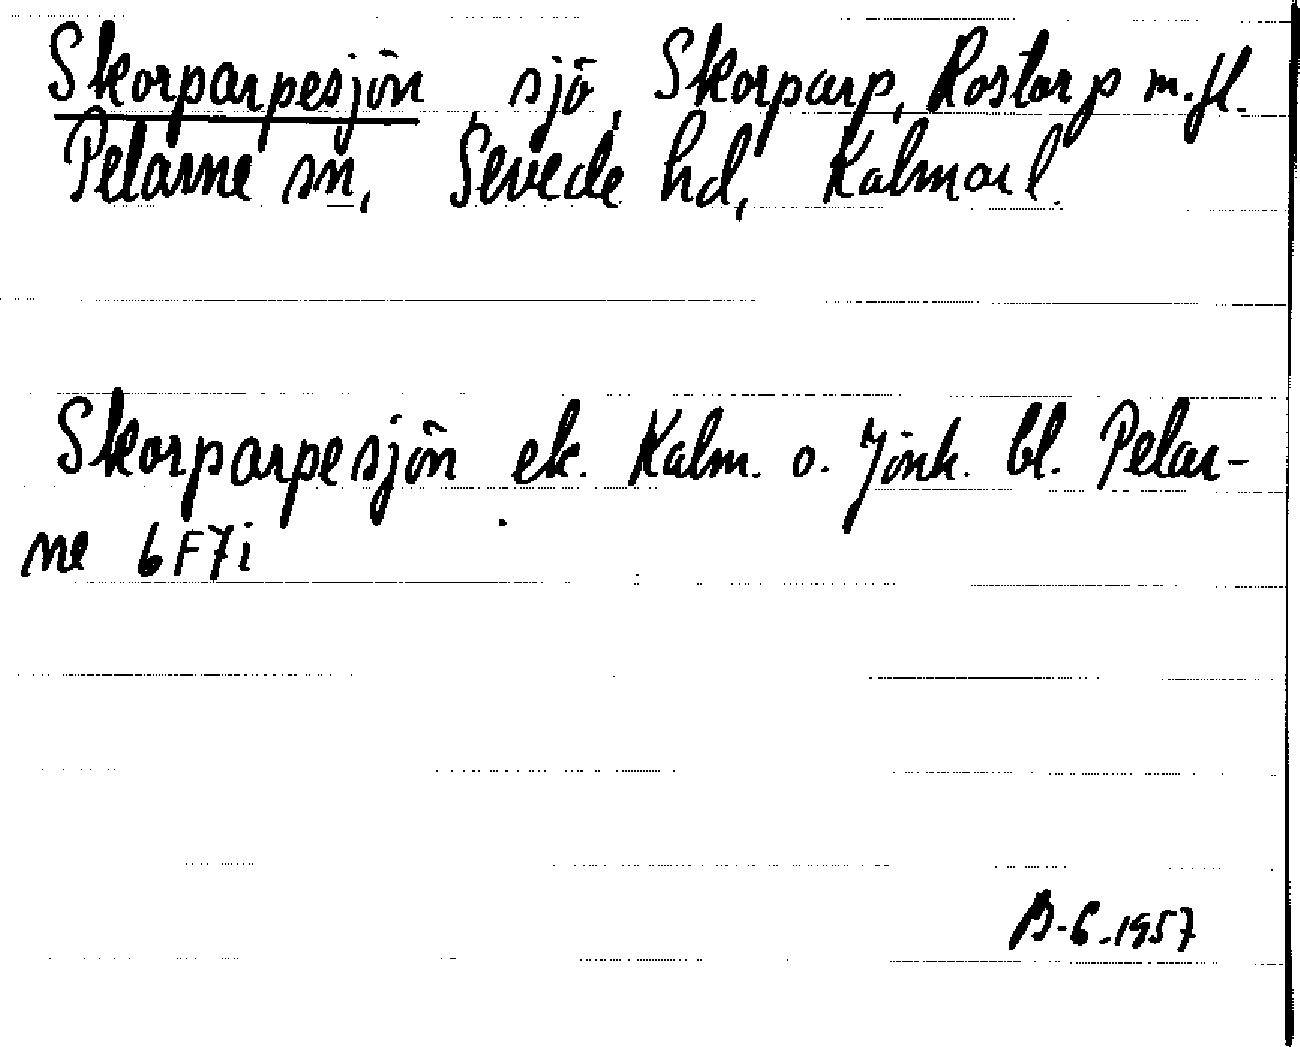 Skorparpesjön, sjö, Skorparp, Rostorp m.fl.
Pelarne sn, Sevede hd, Kalmar l.
Skorparpesjön ek. Kalm. o. Jönk. bl. Pelar-
ne 6F7i
B-G.1957